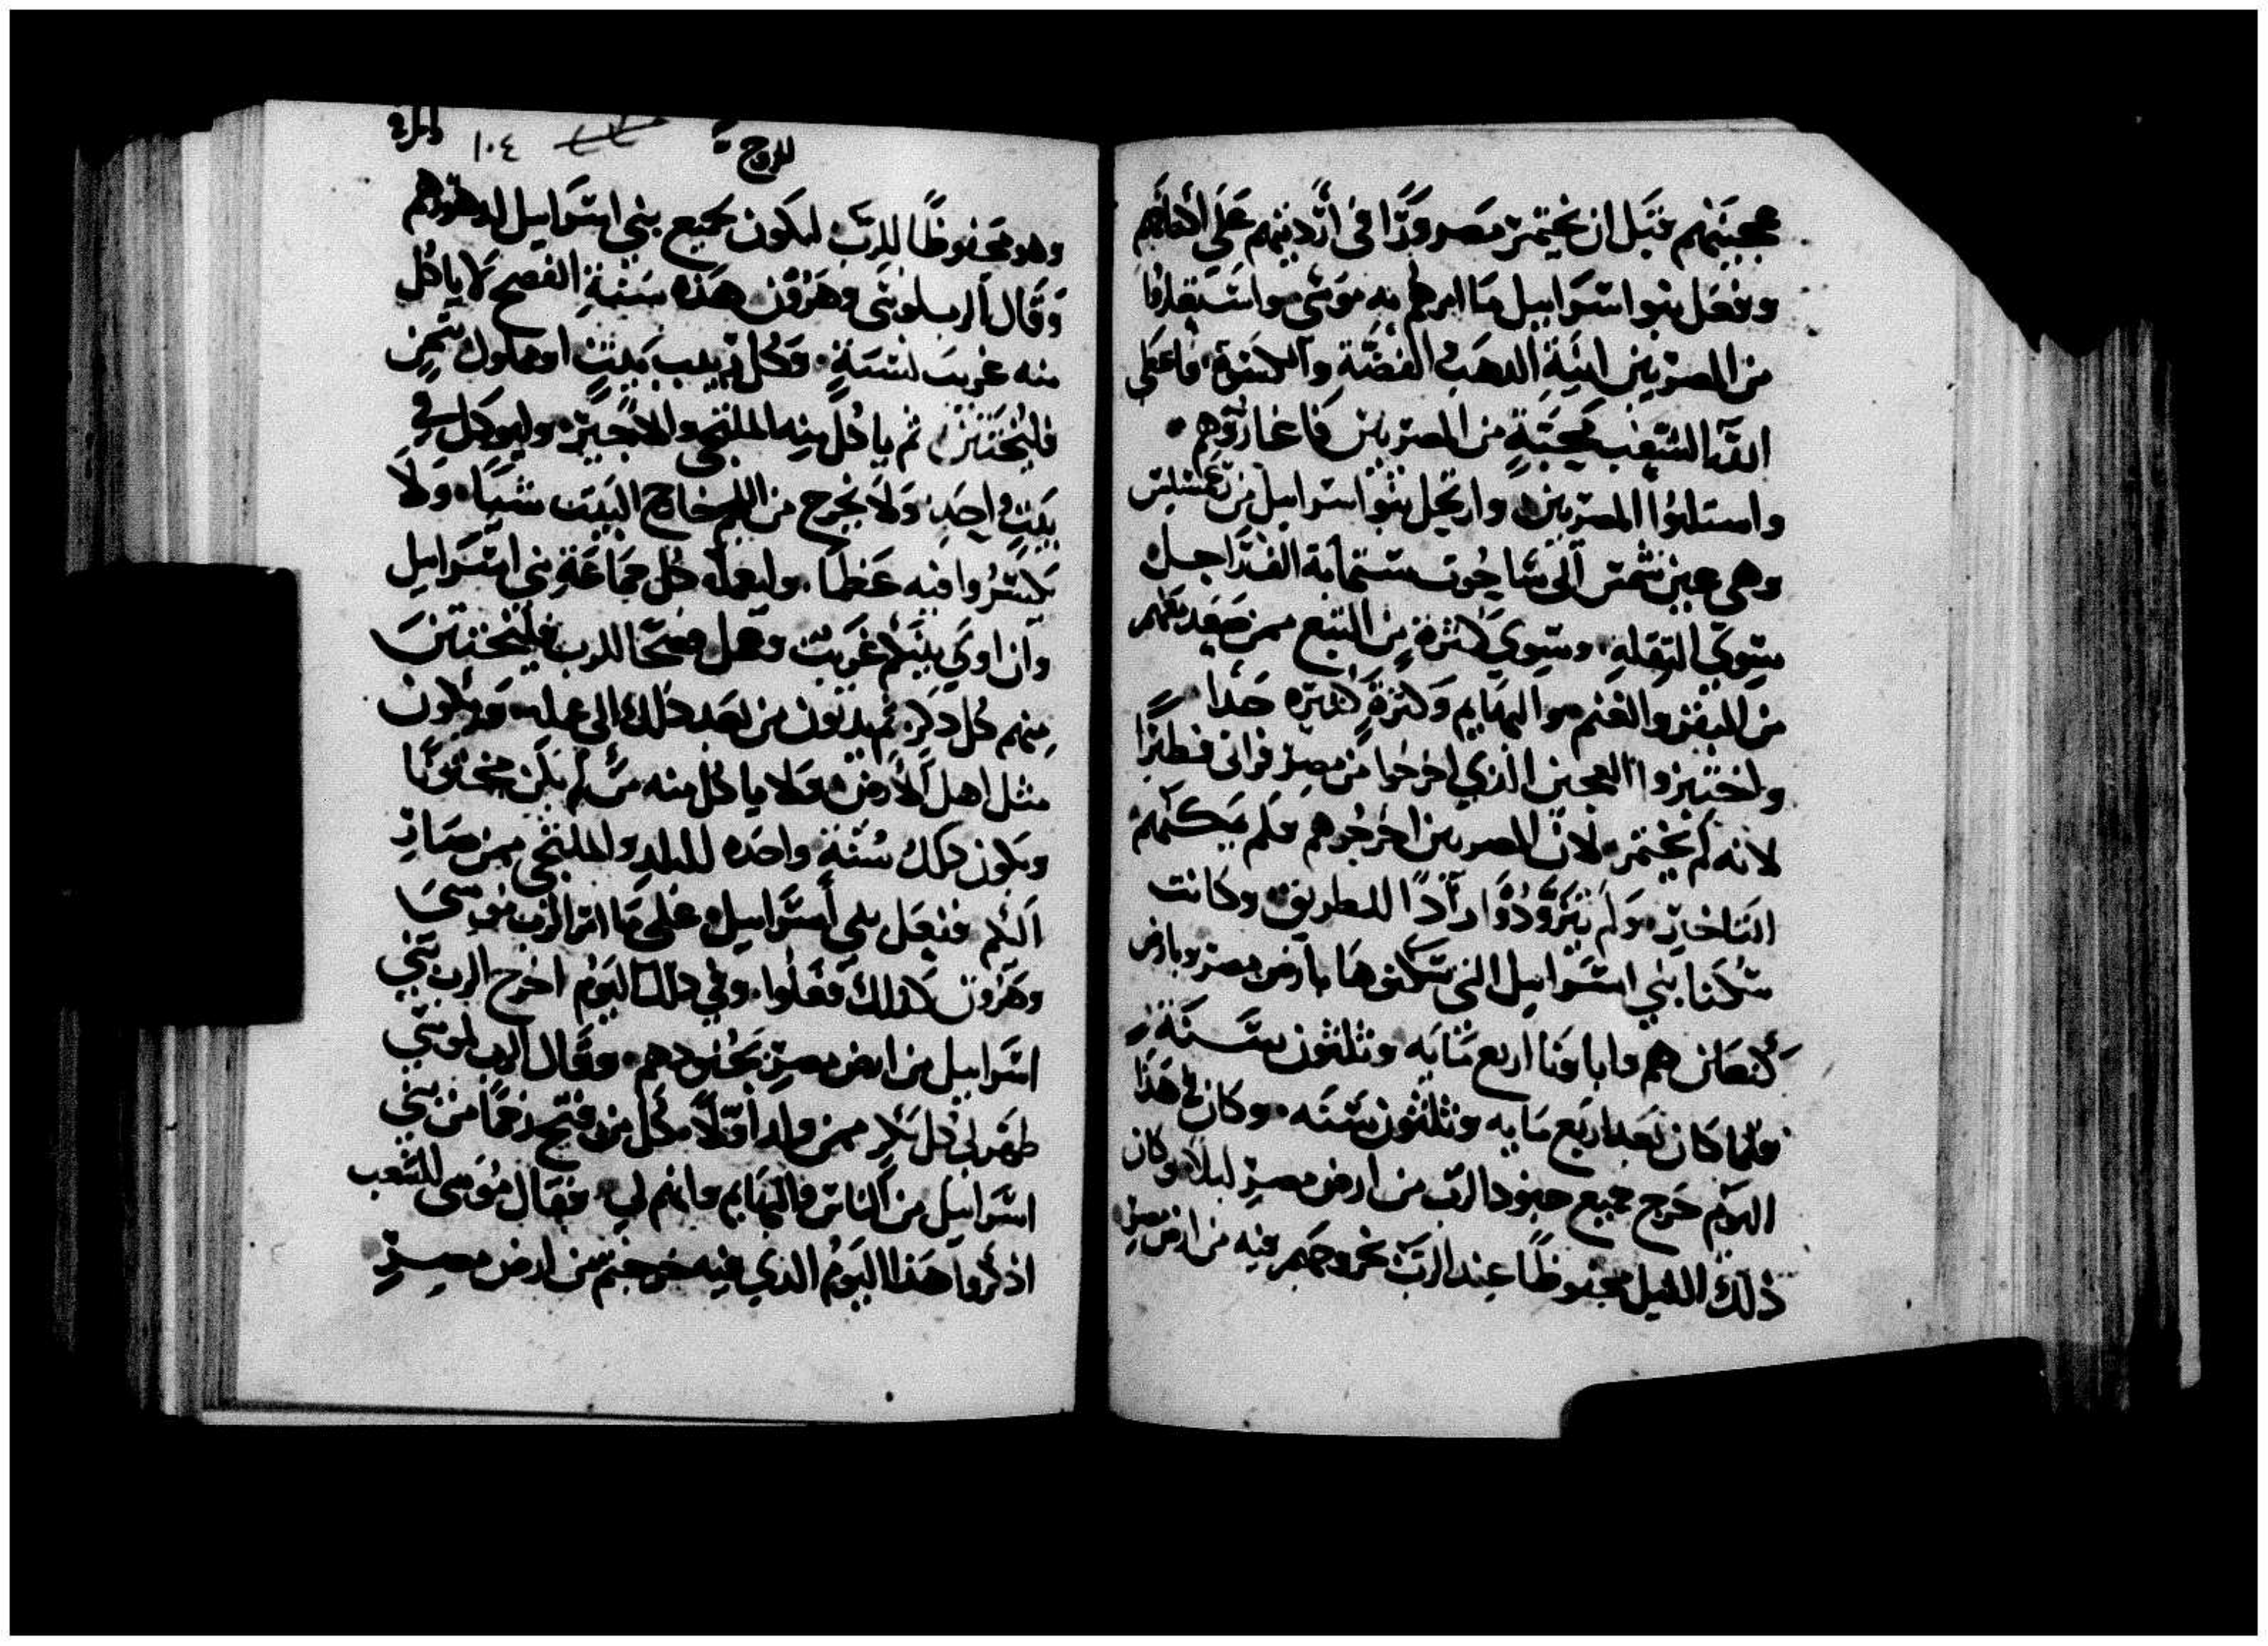 عجينهم قبل ان يختمر مصرورًا في أرديتهم على اكتافهم
وفعل بنوا اسراييل ما امرهم به موسى واستعاروا
من المصريين انية الدهب والفضة والكسوة فاعطى
الله الشعب محبة من المصريين فاعاروهم
واستلبوا المصريين وارتحل بنو اسراييل من رعمسيس
وهي عين شمس الى ساحوت ستماية الف راجل
سوى الثقلة وسوى كثرة من التبع ممن صعد معهم
من البقر والغنم والبهايم وكثرة كثيره جدا
واختبزوا العجين الذي اخرجوا من مصر فراني فطيرًا
لانه لم يختمر لان المصريين اخرجوهم فلم يمكنهم
التاخير ولم يتزودوا زادًا للطريق وكانت
سكنا بني اسراييل التي سكنوها بارض مصر وبارض
كنعان هم واباونا اربع مايه وثلثون سنة
فلما كان بعد اربع مايه وثلثون سنه وكان في هذا
اليوم خرج جميع جنود الرب من ارض مصر ليلا وكان
ذلك الليل محفوظًا عند الرب بخروجهم فيه من ارض مصر
الخروج
١٠٤
وهو محفوظًا للرب ليكون لجميع بني اسراييل لدهورهم
وقال الرب لموسى وهرون هذه سنة الفصح لا ياكل
منه غريب لنسمة وكل بيت او مملوك ثمين
فليختتن ثم ياكل منه الملتجي والاجير وليوكل في
بيت واحد ولا يخرج من اللحم خارج البيت شيا ولا
يكسروا فيه عظما وليعمله كل جماعة بني اسراييل
وان اوى اليكم غريب وعمل فصحا للرب فليختتن
منهم كل ذكر ثم يدنون من بعد ذلك الى عمله ويكون
مثل اهل الارض ولا ياكل منه من لم يكن مختونًا
ويكون لكم سنة واحده للبلد والملتجي ممن صار
اليكم ففعل بني اسراييل على ما امر الرب موسى
وهرون كذلك ففعلوا وفي ذلك اليوم اخرج الرب بني
اسراييل من ارض مصر بجنودهم وقال الرب لموسى
طهر لي كل بكر ممن ولد اوّلًا كل من فتح رحمًا من بني
اسراييل من الناس والبهايم وانهم لي فقال موسى للشعب
اذكروا هذا اليوم الذي فيه خرجتم من ارض مصر